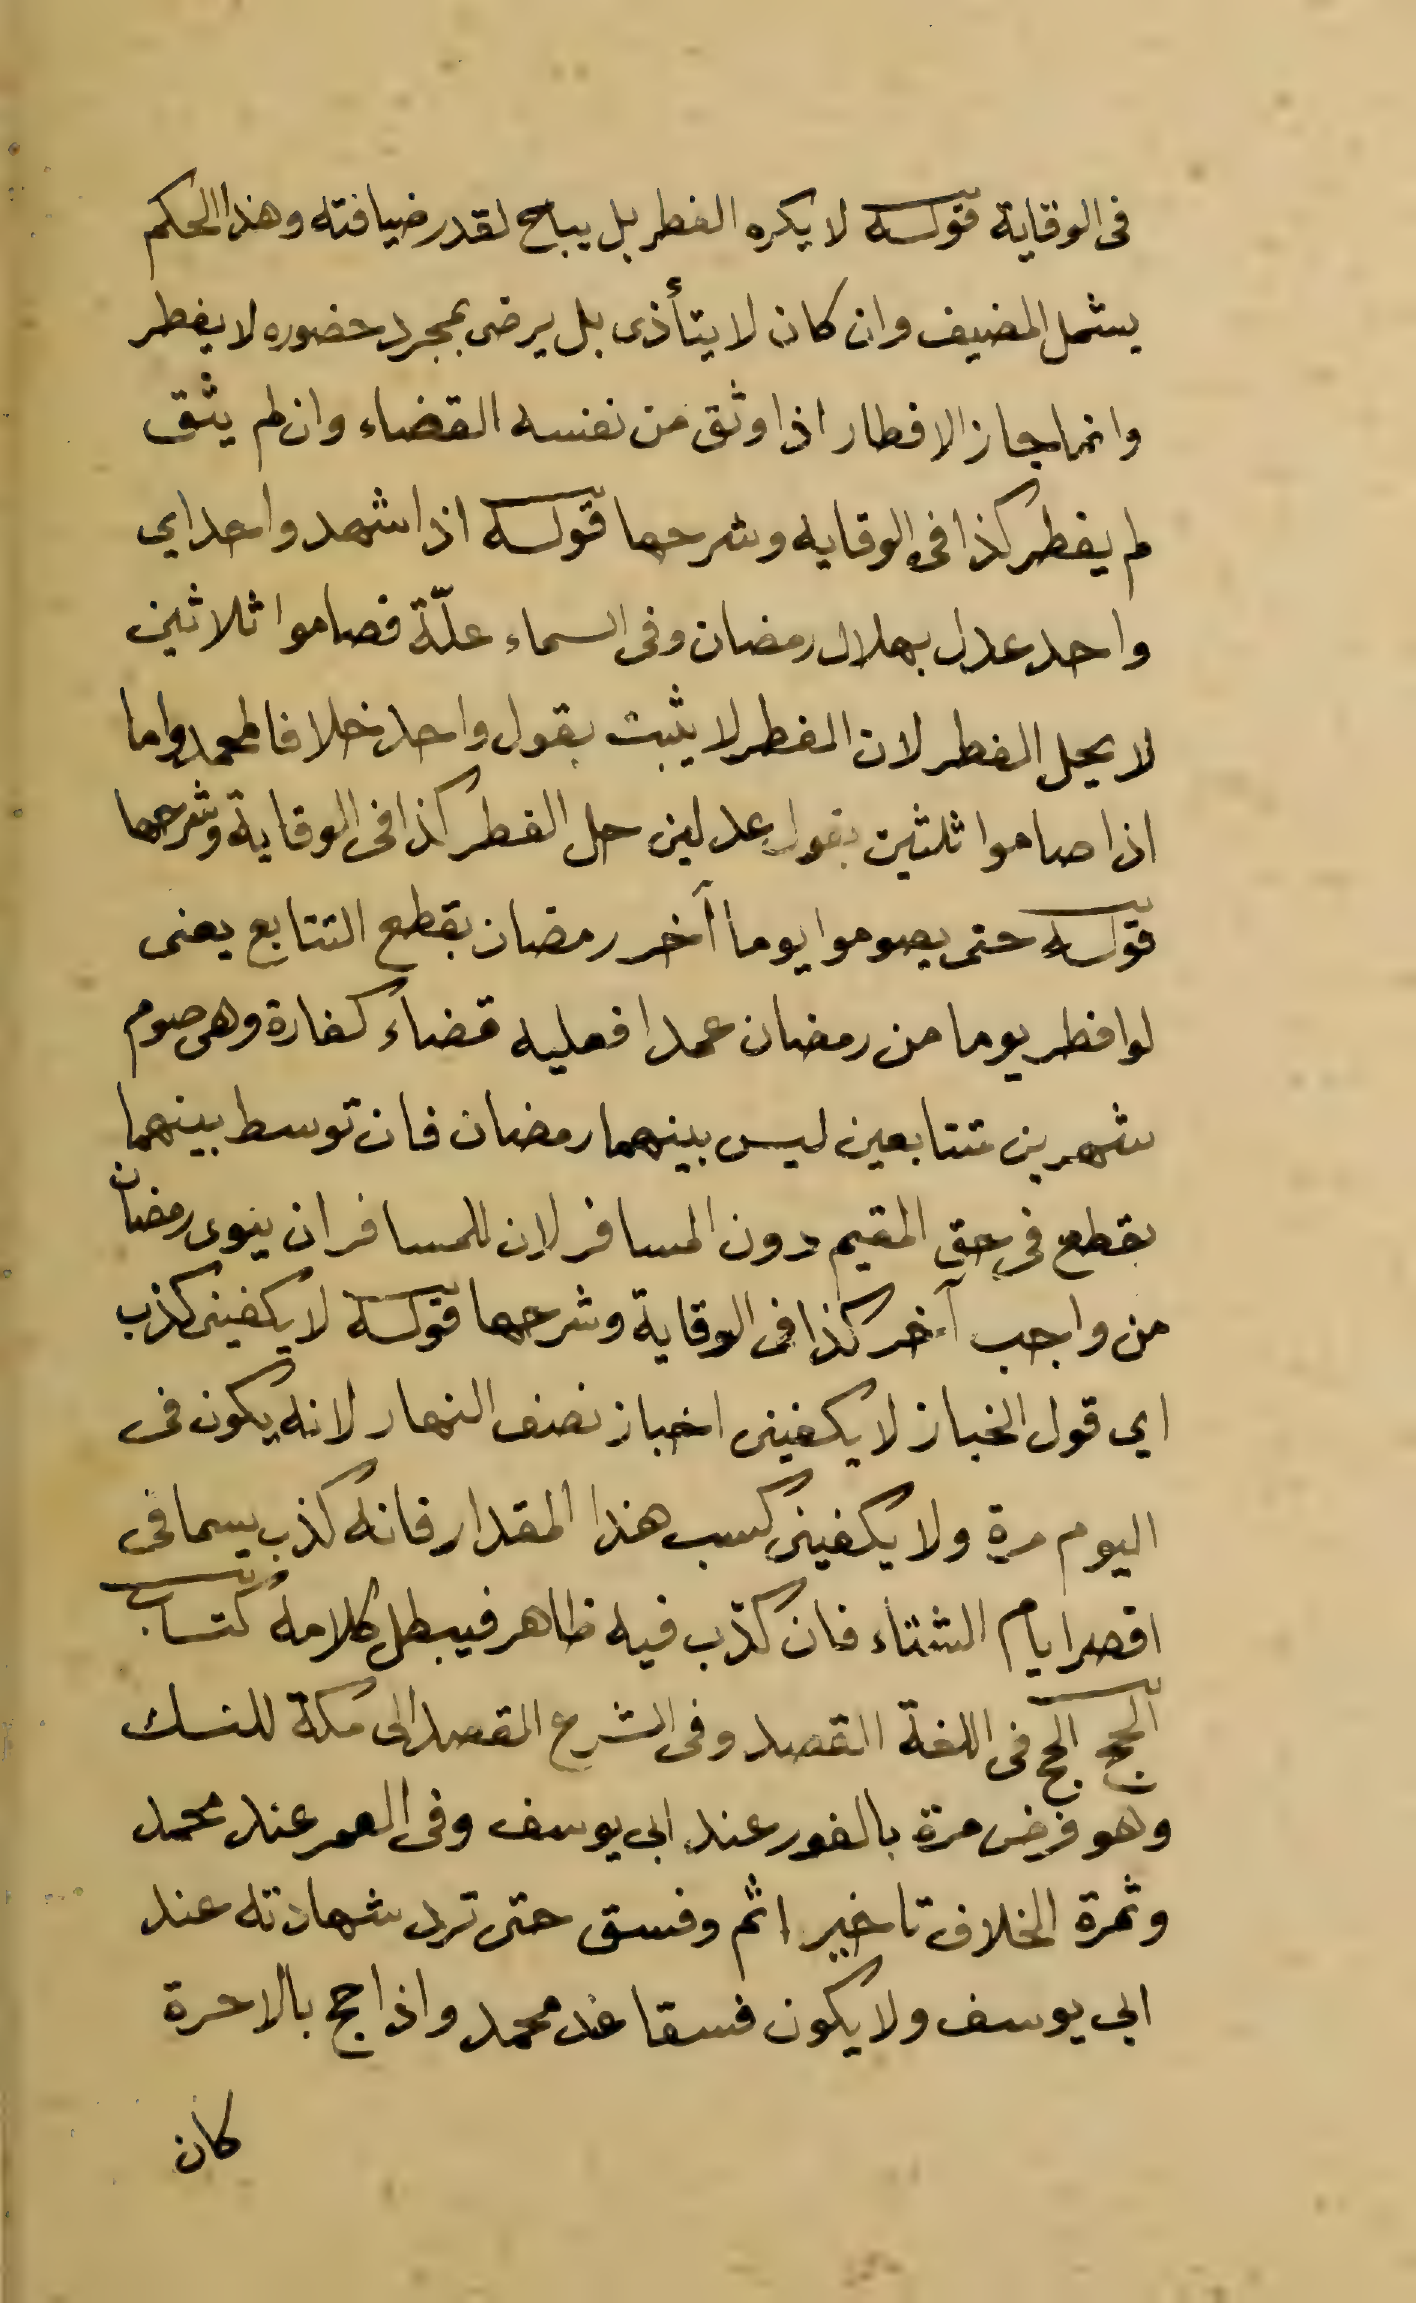 فى الوقاية قوله لا يكره الفطر بل يباح لقدر ضيافته وهذا الحكم
يشمل المضيف وان كان لا يتأذى بل يرضى بمجرد حضوره لا يفطر
وانما جاز الافطار اذا وثق من نفسه القضاء وان لم يثق
لم يفطر كذا فى الوقاية وشرحها قوله اذا شهد واحد اي
واحد عدل بهلال رمضان وفى السماء علّة فصاموا ثلاثين
لا يحل الفطر لان الفطر لا يثبت بقول واحد خلافا لمحمد واما
اذا صاموا ثلثين بقول عدلين حل الفطر كذا فى الوقاية وشرحها
قوله حتى يصوموا يوما آخر رمضان بقطع التتابع يعنى
لو افطر يوما من رمضان عمدا فعليه قضاء كفارة وهى صوم
شهرين متتابعين ليس بينهما رمضان فان توسط بينهما
بقطع فى حق المقيم دون المسافر لان للمسافر ان ينوى رمضان
من واجب آخر كذا فى الوقاية وشرحها قوله لا يكفينى كذب
اي قول الخباز لا يكفينى اخباز نصف النهار لانه يكون فى
اليوم مرة ولا يكفينى كسب هذا المقدار فانه كذب سيما فى
اقصر ايام الشتاء فان كذّب فيه ظاهر فيبطل كلامه كتاب
الحج الحج فى اللغة القصد وفى الشرع القصد الى مكة للنسك
وهو فرض مرة بالفور عند ابى يوسف وفى العمر عند محمد
وثمرة الخلاف تاخير اثم وفسق حتى ترد شهادته عند
ابى يوسف ولا يكون فسقا عند محمد واذا حج بالاحرة
كان